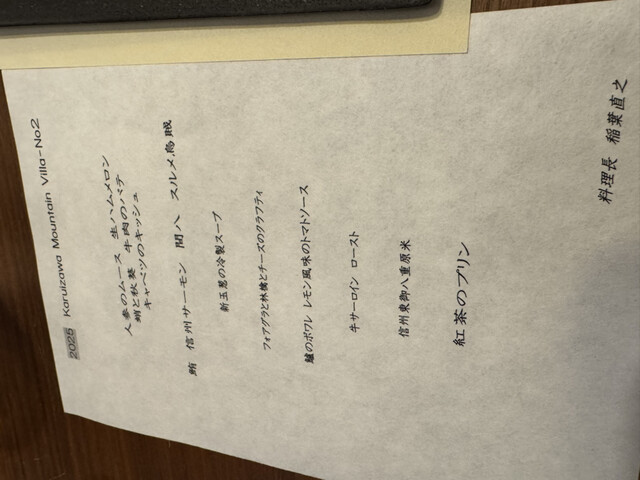 2025 Karuizawa Mountain Villa-No2
人参のムース 生ハムメロン
蛸と秋葵 牛肉のパテ
キャベツのキッシュ
鮪 信州サーモン 間八 スルメ烏賊
新玉葱の冷製スープ
フォアグラと林檎とチーズのクラフティ
鱸のポワレ レモン風味のトマトソース
牛サーロイン ロースト
信州東御八重原米
紅茶のプリン
料理長 稲葉直之